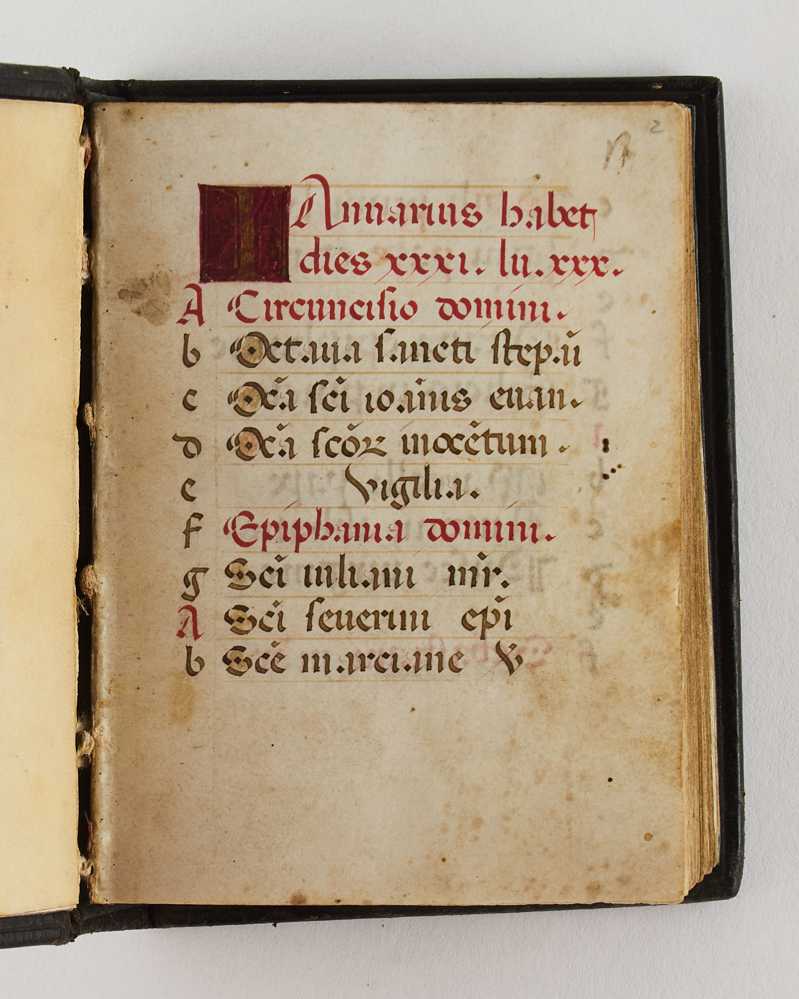 2
IAnuarius habet
dies xxxi. lu. xxx.
A Circuncisio domini.
b Octaua sancti step.ū
c Oc̄a scī ioānis euan.
d Oc̄a scōꝝ inocētum.
e Vigilia.
f Epiphania domini.
g Scī iuliani mr̄.
A Scī seuerini epī
b Scē marciane V